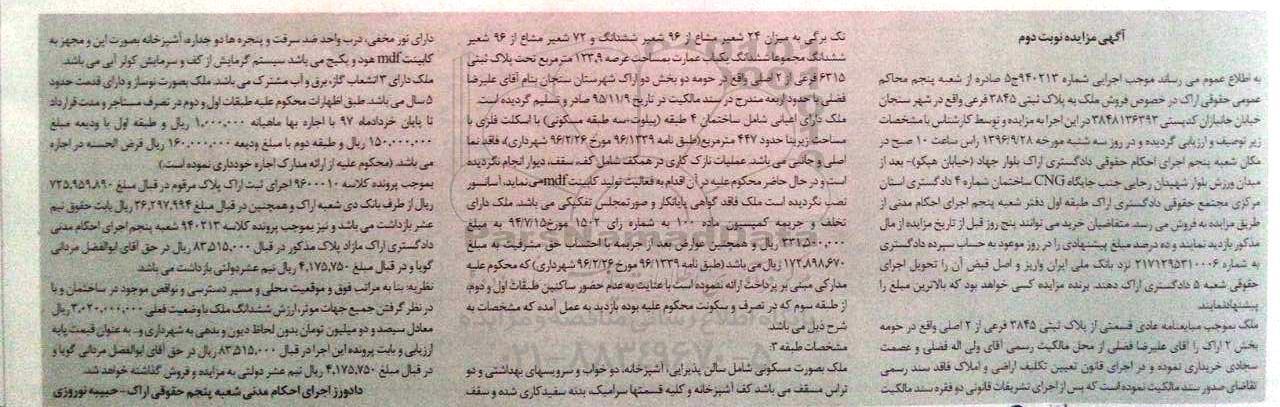 آگهی مزایده نوبت دوم
به اطلاع عموم می رساند بموجب اجرایی شماره ۹۴۰۲۱۳ج۵ صادره از شعبه پنجم محاکم
عمومی حقوقی اراک در خصوص فروش ملک به پلاک ثبتی ۳۸۴۵ فرعی واقع در شهر سنجان
خیابان جانبازان کدپستی ۳۸۴۸۱۳۶۳۹۳ در این اجرا به مزایده و توسط کارشناس با مشخصات
زیر توصیف و ارزیابی گردیده و در روز سه شنبه مورخه ۱۳۹۶/۹/۲۸ راس ساعت ۱۰ صبح در
مکان شعبه پنجم اجرای احکام حقوقی دادگستری اراک بلوار جهاد (خیابان هپکو)- بعد از
میدان ورزش بلوار شهیدان رجایی جنب جایگاه CNG ساختمان شماره ۴ دادگستری استان
مرکزی مجتمع حقوقی دادگستری اراک طبقه اول دفتر شعبه پنجم اجرای احکام مدنی از
طریق مزایده به فروش می رسد. متقاضیان خرید می توانند پنج روز قبل از تاریخ مزایده از مال
مذکور بازدید نمایند و ده درصد مبلغ پیشنهادی را در روز موعود به حساب سپرده دادگستری
به شماره ۲۱۷۱۲۹۵۳۱۰۰۰۶ نزد بانک ملی ایران واریز و اصل قبض آن را تحویل اجرای
حقوقی شعبه ۵ دادگستری اراک دهند. برنده مزایده کسی خواهد بود که بالاترین مبلغ را
پیشنهاد نمایند.
ملک بموجب مبایعنامه عادی قسمتی از پلاک ثبتی ۳۸۴۵ فرعی از ۲ اصلی واقع در حومه
بخش ۲ اراک را آقای علیرضا فضلی از محل مالکیت رسمی آقای ولی اله فضلی و عصمت
سجادی خریداری نموده و در اجرای قانون تعیین تکلیف اراضی و املاک فاقد سند رسمی
تقاضای صدور سند مالکیت نموده است که پس از اجرای تشریفات قانونی دو فقره سند مالکیت
تک برگی به میزان ۲۴ شعیر مشاع از ۹۶ شعیر ششدانگ و ۷۲ شعیر مشاع از ۹۶ شعیر
ششدانگ مجموعا ششدانگ یکباب عمارت بمساحت عرصه ۱۲۳,۹ مترمربع تحت پلاک ثبتی
۶۳۱۵ فرعی از ۲ اصلی واقع در حومه دو بخش دو اراک شهرستان سنجان بنام آقای علیرضا
فضلی با حدود اربعه مندرج در سند مالکیت در تاریخ ۹۵/۱۱/۹ صادر و تسلیم گردیده است.
ملک دارای اعیانی شامل ساختمان ۴ طبقه (پیلوت+سه طبقه مسکونی) با اسکلت فلزی با
مساحت زیربنا حدود ۴۴۷ مترمربع(طبق نامه ۹۶/۱۳۳۹ مورخ ۹۶/۲/۲۶ شهرداری)، فاقد نما
اصلی و جانبی می باشد. عملیات نازک کاری در همکف شامل کف، سقف، دیوار انجام نگردیده
است و در حال حاضر محکوم علیه در آن اقدام به فعالیت تولید کابینت mdf می نماید، آسانسور
نصب نگردیده است ملک فاقد گواهی پایانکار و صورتمجلس تفکیکی می باشد. ملک دارای
تخلف و جریمه کمیسیون ماده ۱۰۰ به شماره رای ۱۵۰۲ مورخ ۹۴/۷/۱۵ به مبلغ
۳۳۱,۵۰۰,۰۰۰ ریال و همچنین عوارض بعد از جریمه با احتساب حق مشرفیت به مبلغ
۱۷۲,۸۹۸,۶۷۰ ریال می باشد (طبق نامه ۹۶/۱۳۳۹ مورخ ۹۶/۲/۲۶ شهرداری) که محکوم علیه
مدارکی مبنی بر پرداخت ارائه ننموده است با عنایت به عدم حضور ساکنین طبقات اول و دوم،
از طبقه سوم که در تصرف و سکونت محکوم علیه بوده بازدید به عمل آمده که مشخصات به
شرح ذیل می باشد
مشخصات طبقه ۳:
ملک بصورت مسکونی شامل سالن پذیرایی، آشپزخانه، دو خواب و سرویسهای بهداشتی و دو
تراس مسقف می باشد کف آشپزخانه و کلیه قسمتها سرامیک، بدنه سفیدکاری شده و سقف
دارای نور مخفی، درب واحد ضد سرقت و پنجره ها دو جداره، آشپزخانه بصورت اپن و مجهز به
کابینت mdf هود و پکیج می باشد سیستم گرمایش از کف و سرمایش کولر آبی می باشد.
ملک دارای ۳ انشعاب گاز، برق و آب مشترک می باشد. ملک بصورت نوساز و دارای قدمت حدود
۵ سال می باشد. طبق اظهارات محکوم علیه طبقات اول و دوم در تصرف مستاجر و مدت قرارداد
تا پایان خردادماه ۹۷ با اجاره بها ماهیانه ۱,۰۰۰,۰۰۰ ریال و طبقه اول با ودیعه مبلغ
۱۵۰,۰۰۰,۰۰۰ ریال و طبقه دوم با مبلغ ودیعه ۱۶۰,۰۰۰,۰۰۰ ریال قرض الحسنه در اجاره
می باشد. (محکوم علیه از ارائه مدارک اجاره خودداری نموده است)
بموجب پرونده کلاسه ۹۶۰۰۰۱۰ اجرای ثبت اراک پلاک مرقوم در قبال مبلغ ۷۲۵,۹۵۹,۸۹۰
ریال از طرف بانک دی شعبه اراک و همچنین در قبال مبلغ ۳۶,۲۹۷,۹۹۴ ریال بابت حقوق نیم
عشر بازداشت می باشد و نیز بموجب پرونده کلاسه ۹۴۰۲۱۳ شعبه پنجم اجرای احکام مدنی
دادگستری اراک مازاد پلاک مذکور در قبال ۸۳,۵۱۵,۰۰۰ ریال در حق آقای ابوالفضل مردانی
گویا و در قبال مبلغ ۴,۱۷۵,۷۵۰ ریال نیم عشر دولتی بازداشت می باشد.
نظریه: بنا به مراتب فوق و موقعیت محلی و مسیر دسترسی و نواقص موجود در ساختمان و با
در نظر گرفتن جمیع جهات موثر، ارزش ششدانگ ملک با وضعیت فعلی ۳,۰۲۰,۰۰۰,۰۰۰ ریال
معادل سیصد و دو میلیون تومان بدون لحاظ دیون و بدهی به شهرداری و... به عنوان قیمت پایه
ارزیابی و بابت پرونده این اجرا در قبال ۸۳,۵۱۵,۰۰۰ ریال در حق آقای ابوالفضل مردانی گویا و
در قبال مبلغ ۴,۱۷۵,۷۵۰ ریال نیم عشر دولتی به مزایده و فروش گذاشته خواهد شد.
دادورز اجرای احکام مدنی شعبه پنجم حقوقی اراک-حبیبه نوروزی
۰۲۱-۸۸۳۴۹۶۷۰-۵